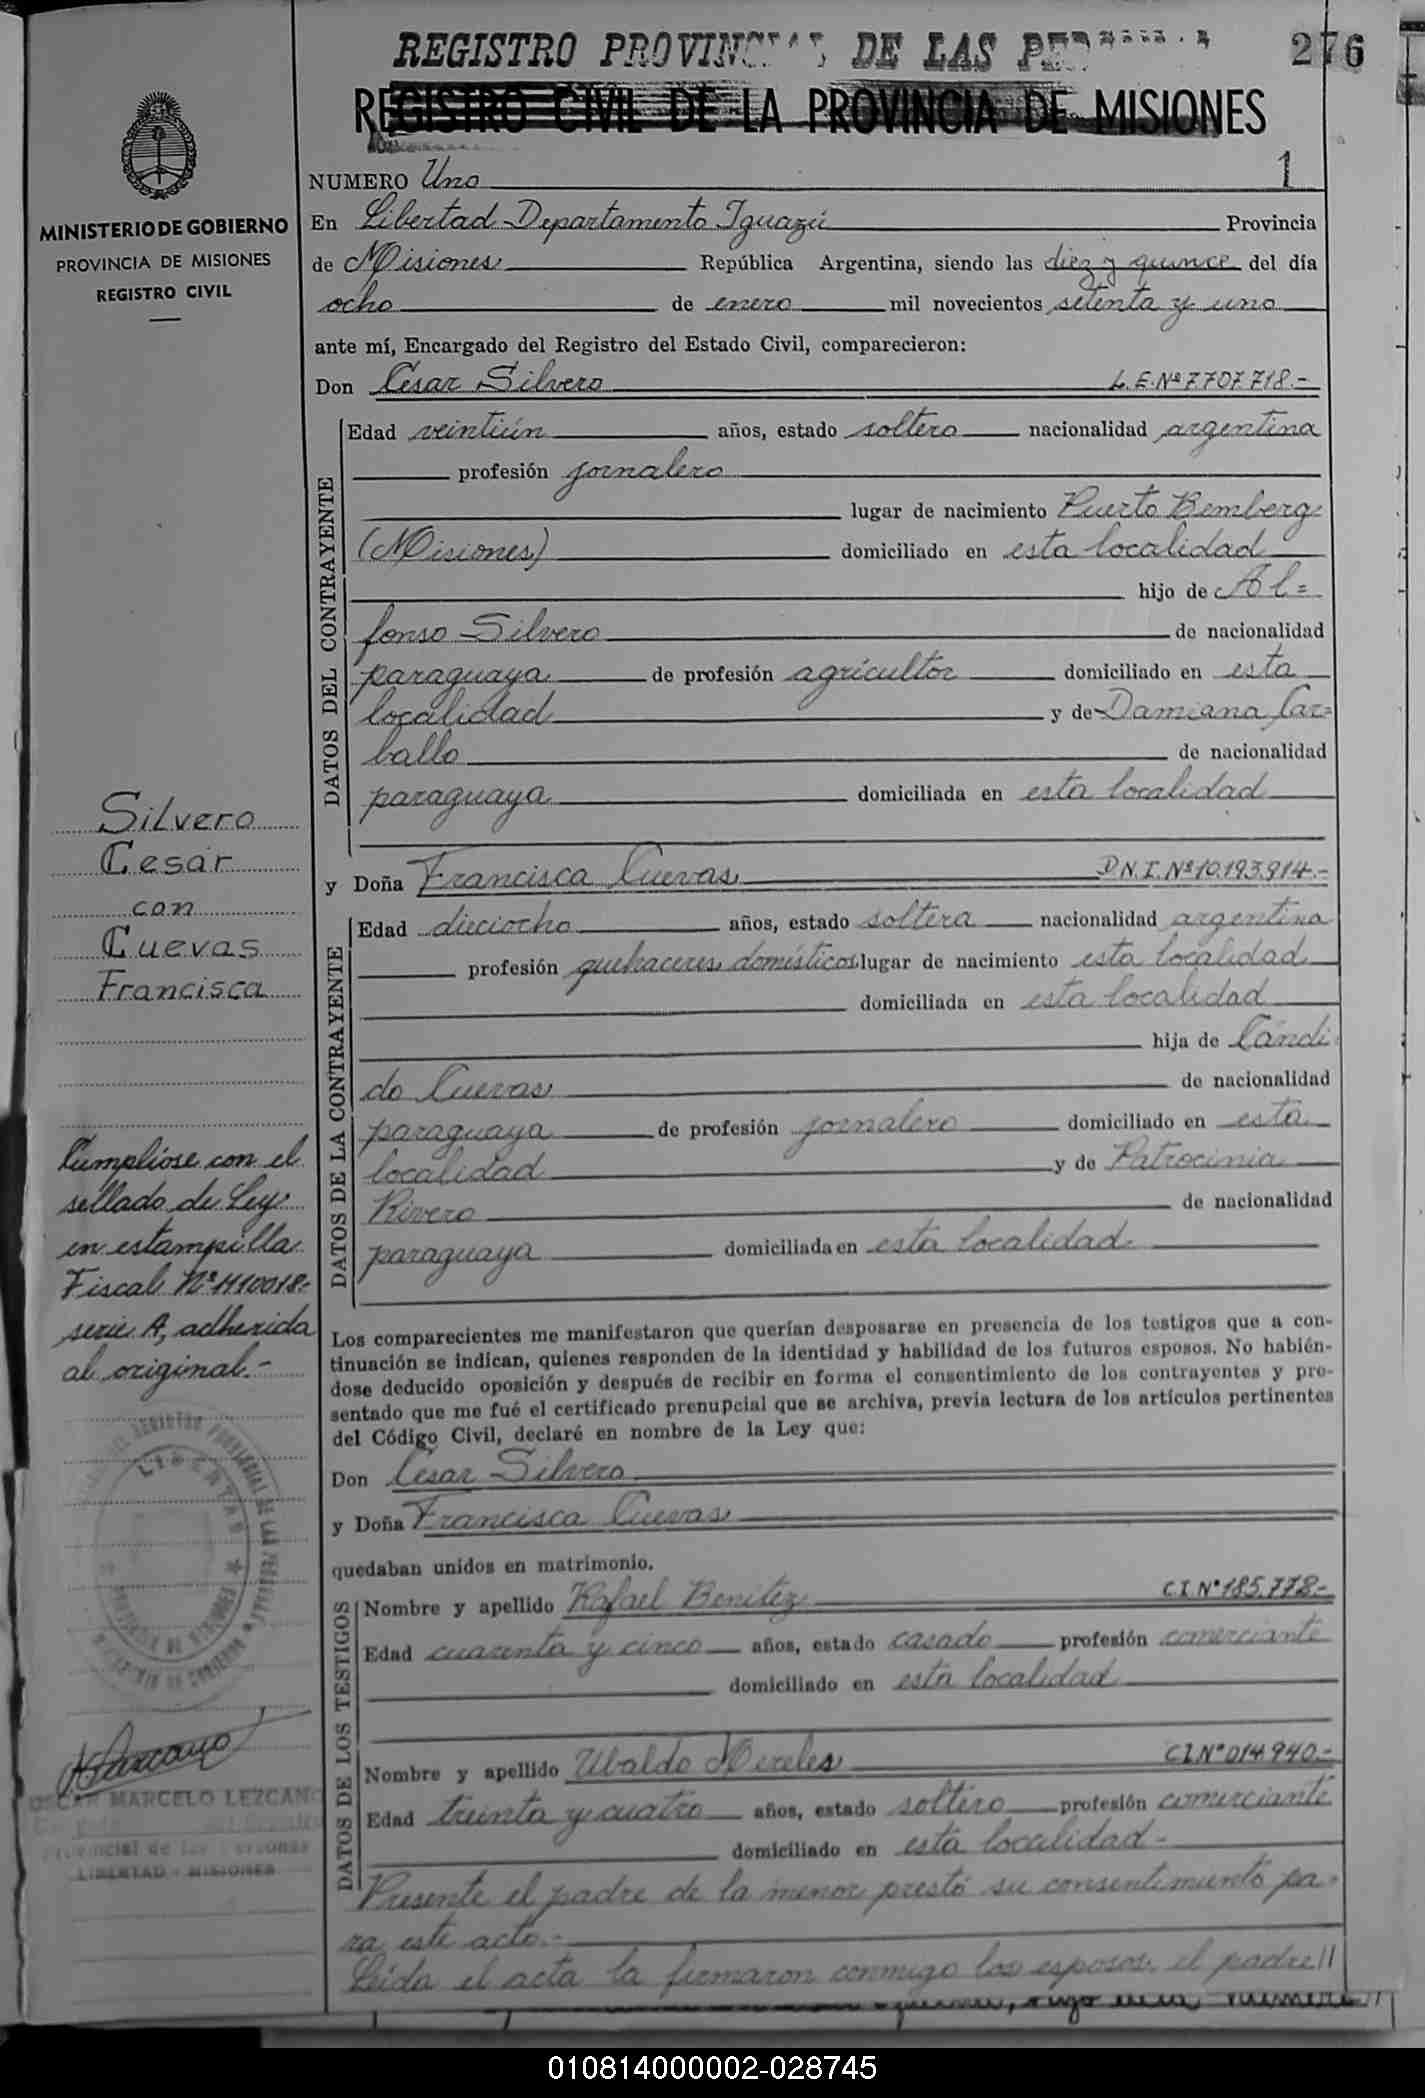 REGISTRO PROVINCIAL DE LAS PERSONAS
276
REGISTRO CIVIL DE LA PROVINCIA DE MISIONES
MINISTERIO DE GOBIERNO
PROVINCIA DE MISIONES
REGISTRO CIVIL
NUMERO Uno 1
En Libertad Departamento Iguazú Provincia
de Misiones República Argentina, siendo las diez y quince del día
ocho de enero mil novecientos setenta y uno
ante mí, Encargado del Registro del Estado Civil, comparecieron:
Don Cesar Silvero L.E.Nº7707718.-
DATOS DEL CONTRAYENTE
Edad veintiún años, estado soltero nacionalidad argentina
profesión jornalero
lugar de nacimiento Puerto Bemberg
(Misiones) domiciliado en esta localidad
hijo de Al=
fonso Silvero de nacionalidad
paraguaya de profesión agricultor domiciliado en esta
localidad y de Damiana Car=
ballo de nacionalidad
paraguaya domiciliada en esta localidad
Silvero
Cesar
con
Cuevas
Francisca
y Doña Francisca Cuevas D.N.I.Nº10.193.914.-
DATOS DE LA CONTRAYENTE
Edad dieciocho años, estado soltera nacionalidad argentina
profesión quehaceres domésticos lugar de nacimiento esta localidad
domiciliada en esta localidad
hija de Cándi
do Cuevas de nacionalidad
paraguaya de profesión jornalero domiciliado en esta
localidad y de Patrocinia
Rivero de nacionalidad
paraguaya domiciliada en esta localidad
Cumplióse con el
sellado de Ley
en estampilla
Fiscal Nº 1110018-
serie A, adherida
al original.-
Los comparecientes me manifestaron que querían desposarse en presencia de los testigos que a con-
tinuación se indican, quienes responden de la identidad y habilidad de los futuros esposos. No habién-
dose deducido oposición y después de recibir en forma el consentimiento de los contrayentes y pre-
sentado que me fué el certificado prenupcial que se archiva, previa lectura de los artículos pertinentes
del Código Civil, declaré en nombre de la Ley que:
Don Cesar Silvero
y Doña Francisca Cuevas
quedaban unidos en matrimonio.
DATOS DE LOS TESTIGOS
Nombre y apellido Rafael Benitez C.I.Nº185.778-
Edad cuarenta y cinco años, estado casado profesión comerciante
domiciliado en esta localidad
Nombre y apellido Ubaldo Mereles C.I.Nº014.940.-
Edad treinta y cuatro años, estado soltero profesión comerciante
domiciliado en esta localidad-
Presente el padre de la menor prestó su consentimiento pa-
ra este acto.-
Leida el acta la firmaron conmigo los esposos, el padre//
LIBERTAD
OSCAR MARCELO LEZCANO
Provincial de las Personas
LIBERTAD - MISIONES
010814000002-028745